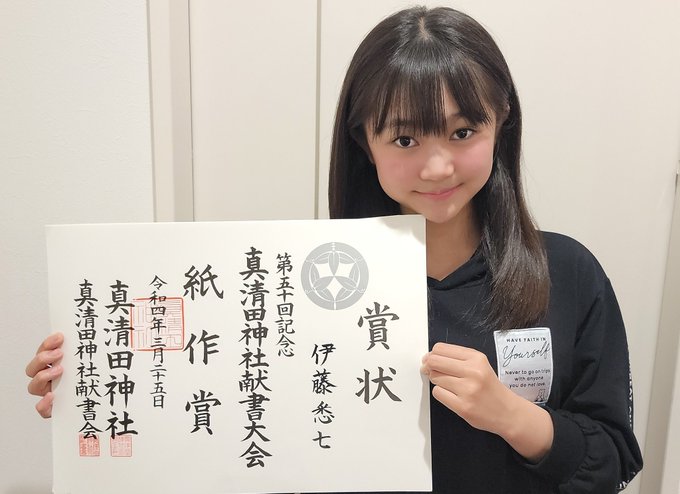 賞状
伊藤 七
第五十回記念
真清田神社献書大会
紙作賞
令和四年三月二十五日
真清田神社
真清田神社献書会
HAVE FAITH IN
Yourself
Never to go on trips
with anyone
you do not love.